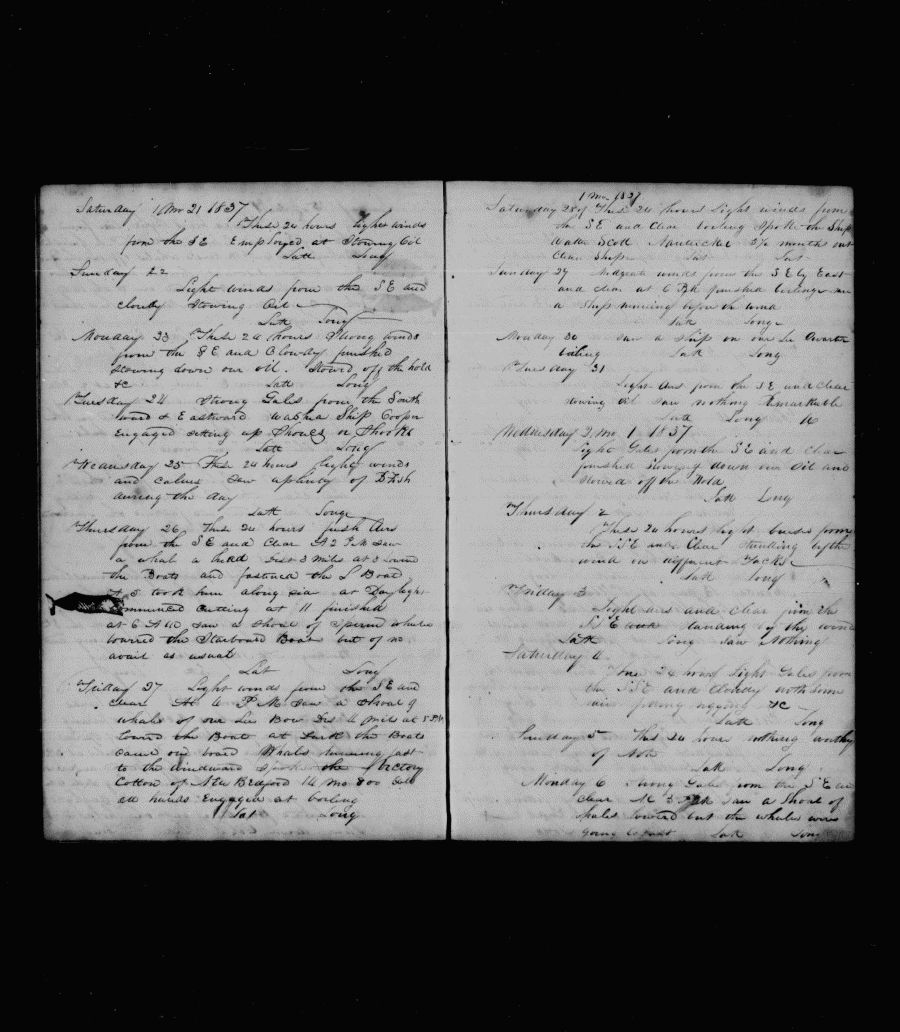 Saturday 1 Mo 21 1837
These 24 hours light winds
from the SE Employed at Stowing Oil
Latt Long
Sunday 22
Light winds from the SE and
cloudy Stowing Oil
Latt Long
Monday 23 These 24 hours Strong winds
from the SE and Cloudy finished
Stowing down our oil. Stowed off the hold
&c Latt Long
Tuesday 24 Strong Gales from the South
ward & Eastward Washd Ship Cooper
Engaged setting up Shooks
Latt Long
Wednesday 25 These 24 hours light winds
and calms Saw aplenty of B Fish
during the day
Latt Longe
Thursday 26 These 24 hours fresh Airs
from the SE and Clear At 2 PM Saw
a whale a head Dist 3 miles at 3 Lowerd
the Boats and fastened the L Boat
at 5 took him along side at Daylight
Commenced Cutting at 11 finished
at 6 AM saw a Shoal of Sperm whales
lowered the Starboard Boat but of no
avail as usual
Lat Long
Friday 27 Light winds from the SE and
clear At 4 P M Saw a Shoal of
whales of our Lee Bow Dis 4 miles at 5 PM
lowerd the Boat at Dark the Boats
came on board Whales running fast
to the windward Spoke the Hectory
Cotton of New Bedford 14 mo 800 bbls
all hands Engaged at boiling
Lat Long
1 Mo 1837
Saturday 28 These 24 hours light winds from
the SE and Clear boiling Spoke the Ship
Walter Scott Nantucket months out
Clean Ship Lat Lat
Sunday 29 winds from the SE by East
and clear at 6 PM finished boiling saw
a Ship running before the wind
Latt Longe
Monday 30 saw a Ship on our Lee Quarter
boiling Latt Long
Tuesday 31
Light airs from the SE and Clear
stowing oil saw nothing Remarkable
Latt Long
Wednesday 2 Mo 1 1837
Light Gales from the SE and Clear
finished Stowing down our Oil and
stowed off the Hold
Latt Long
Thursday 2
These 24 hours light breeses from
the SSE and Clear Steering by the
wind on different Tacks
Latt Long
Friday 3
Light airs and clear from the
SE and standing by the wind
Latt Long Saw Nothing
Saturday 4
These 24 hours Light Gales from
the SSE and Cloudy
our rigging &c
Latt Long
Sunday 5 This 24 hours nothing worthy
of Note
Latt Long
Monday 6 Strong Gales from the SE and
clear At 3 PM Saw a Shoal of
whales lowered but the whales were
going to fast Latt Long